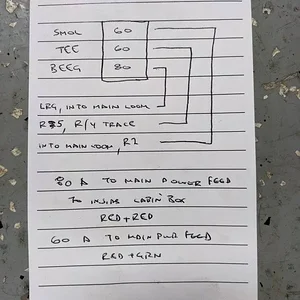 SMOL 60
TEE 60
BEEG 80
LRG, INTO MAIN LOOM
R/Y TRACE
INTO MAIN LOOM, R2
80 A TO MAIN POWER FEED
TO INSIDE CABIN BOX
RED+RED
60 A TO MAIN PWR FEED
RED+GRN